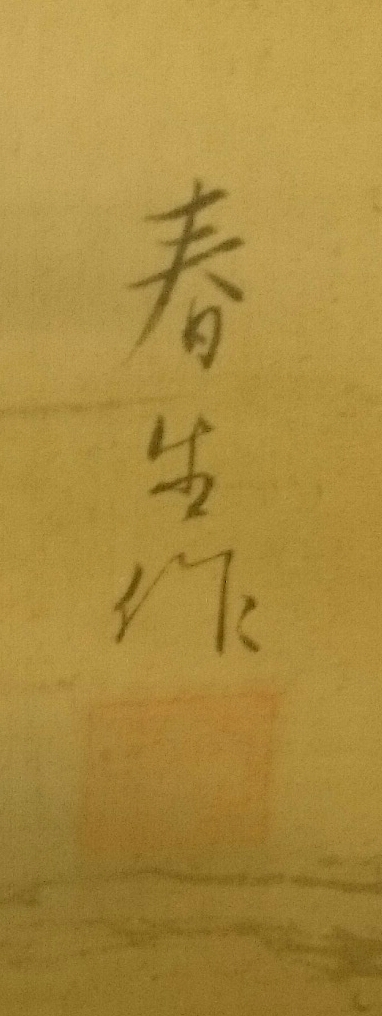 春生作